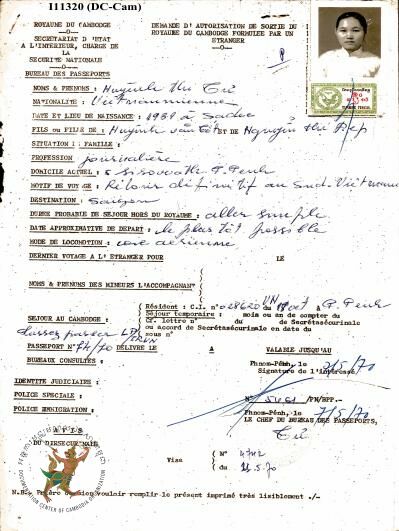 I11320 (DC-Cam)
ROYAUME DU CAMBODGE
SECRÉTARIAT D'ETAT
A L'INTÉRIEUR, CHARGE DE
LA
SECURITE NATIONALE
BUREAU DES PASSEPORTS
DEMANDE D'AUTORISATION DE SORTIE DU
ROYAUME DU CAMBODGE FORMULEE PAR UN
ETRANGER
NOMS & PRENOMS : Huỳnh Thị Tư
NATIONALITE : Vietnamienne
DATE ET LIEU DE NAISSANCE : 1939 à Sadec
FILS ou FILLE DE : Huỳnh văn ET DE Nguyễn thị
SITUATION FAMILLE :
PROFESSION journalière
DOMICILE ACTUEL : Sisowath P. Penh
MOTIF DE VOYAGE : Retour définitif au Sud-Vietnam
DESTINATION : Saigon
DUREE PROBABLE DE SEJOUR HORS DU ROYAUME : aller simple
DATE APPROXIMATIVE DE DEPART : le plus tôt possible
MODE DE LOCOMOTION : voie aérienne
DERNIER VOYAGE A L'ETRANGER POUR LE
NOMS & PRENOMS DES MINEURS L'ACCOMPAGNANT
SEJOUR AU CAMBODGE :
Résident : C.I. n° 028620 VN du à P. Penh
Séjour temporaire : mois ou an de compter du
Cf. lettre n° du de Secrétasécurinale
ou accord de Secrétasécurinale en date du
sous n°
laissez passer
PASSEPORT N° 74/70 DELIVRE LE A VALABLE JUSQU'AU
BUREAUX CONSULTES :
Phnom-Pénh, le 7/5/70
Signature de l'intéressé
IDENTITE JUDICIAIRE :
POLICE SPECIALE :
POLICE IMMIGRATION :
N° /PN/BPP.-
Phnom-Pénh, le 7/5/70
LE CHEF DU BUREAU DES PASSEPORTS,
Tư
AVIS
DU DIRSECURINALE
Visa
N° 4742
du .5.70
DOCUMENTATION CENTER OF CAMBODIA ORGANIZATION
N.B.- Prière de bien vouloir remplir le présent imprimé très lisiblement ./-